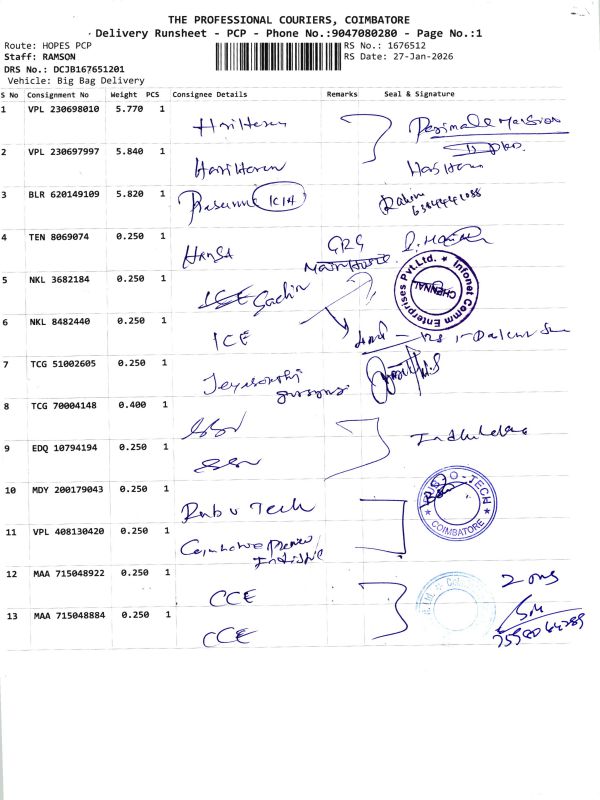 THE PROFESSIONAL COURIERS, COIMBATORE
Delivery Runsheet - PCP - Phone No.:9047080280 - Page No.:1
Route: HOPES PCP
RS No.: 1676512
Staff: RAMSON
RS Date: 27-Jan-2026
DRS No.: DCJB167651201
Vehicle: Big Bag Delivery
S No Consignment No Weight PCS Consignee Details Remarks Seal & Signature
1 VPL 230698010 5.770 1 HariHaran
2 VPL 230697997 5.840 1 HariHaran HariHaran
3 BLR 620149109 5.820 1 KCH
4 TEN 8069074 0.250 1 HANSA
5 NKL 3682184 0.250 1 Sachin
Infonet Comm Enterprises Pvt.Ltd. * CHENNAI
6 NKL 8482440 0.250 1 ICE
7 TCG 51002605 0.250 1
8 TCG 70004148 0.400 1 SSV
9 EDQ 10794194 0.250 1 SSV
10 MDY 200179043 0.250 1 Tech
COIMBATORE
11 VPL 408130420 0.250 1
12 MAA 715048922 0.250 1 CCE
13 MAA 715048884 0.250 1 CCE
7598064289